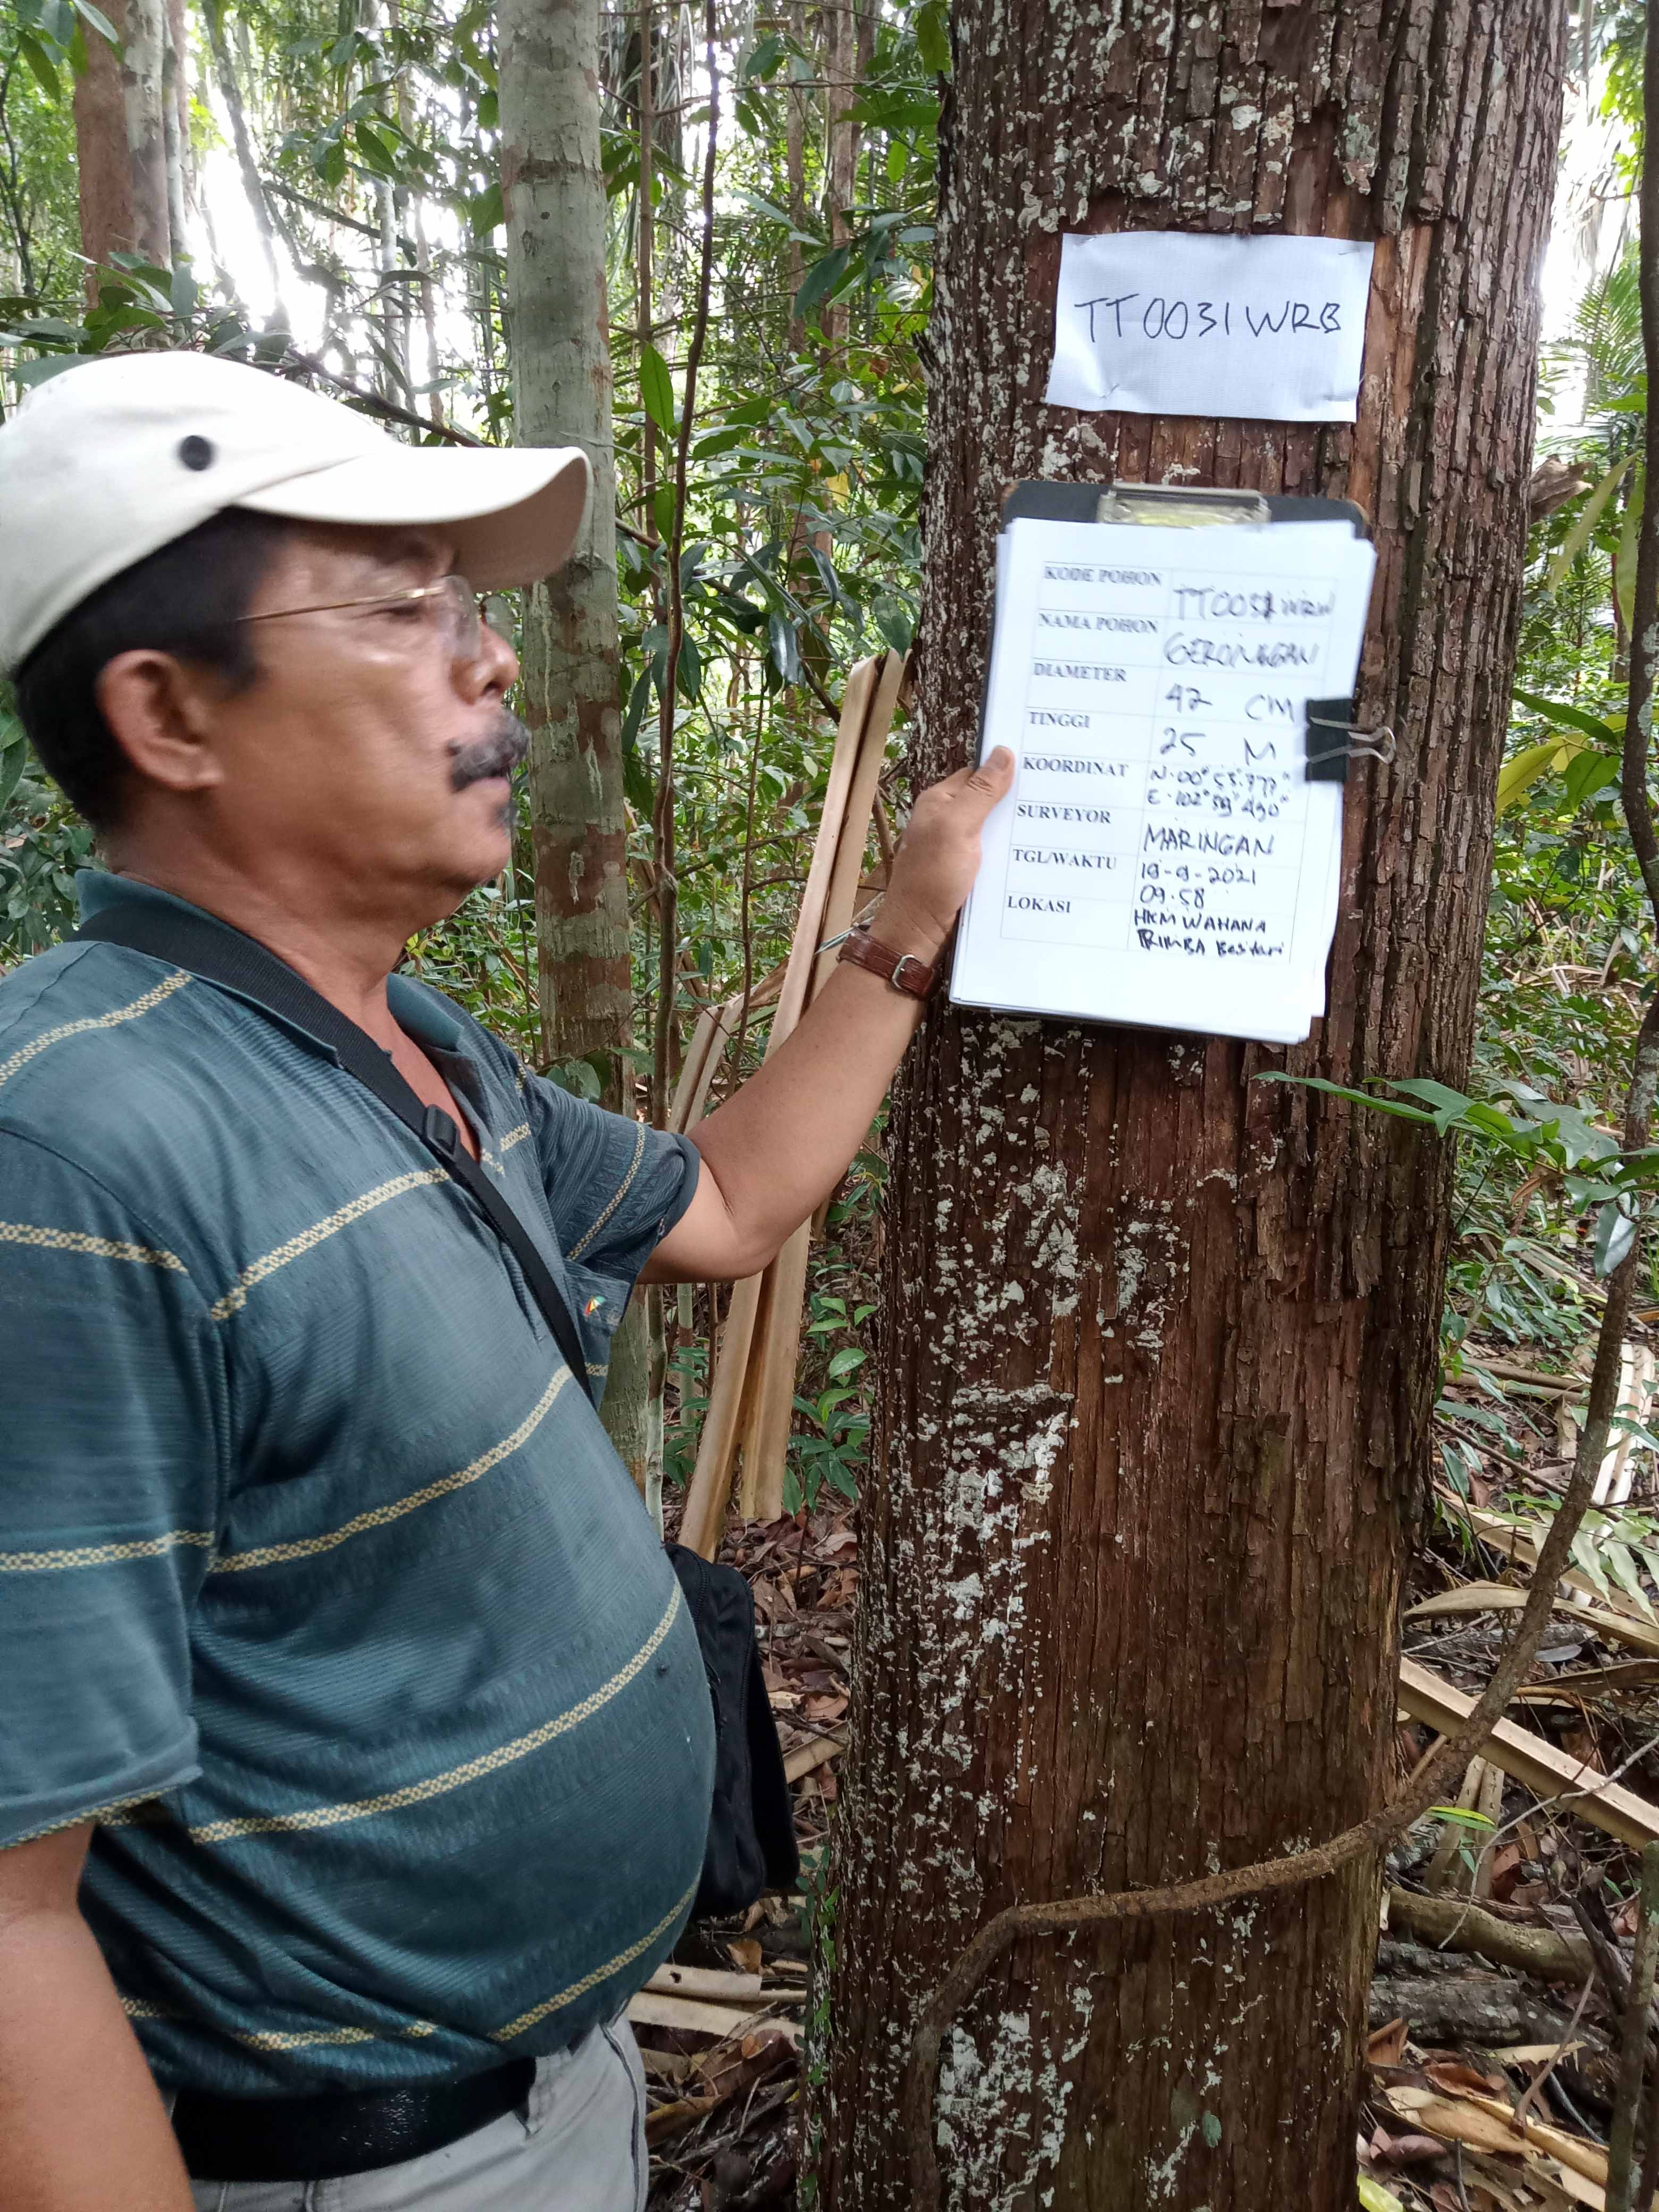 TT0031WRB
KODE POHON TT0031WRW
NAMA POHON GERONGGAN
DIAMETER 42 CM
TINGGI 25 M
KOORDINAT N.00° 53'.777"
E.102° 59' 490"
SURVEYOR MARINGAN
TGL/WAKTU 19-9-2021
09.58
LOKASI HKM WAHANA
RIMBA Bestari